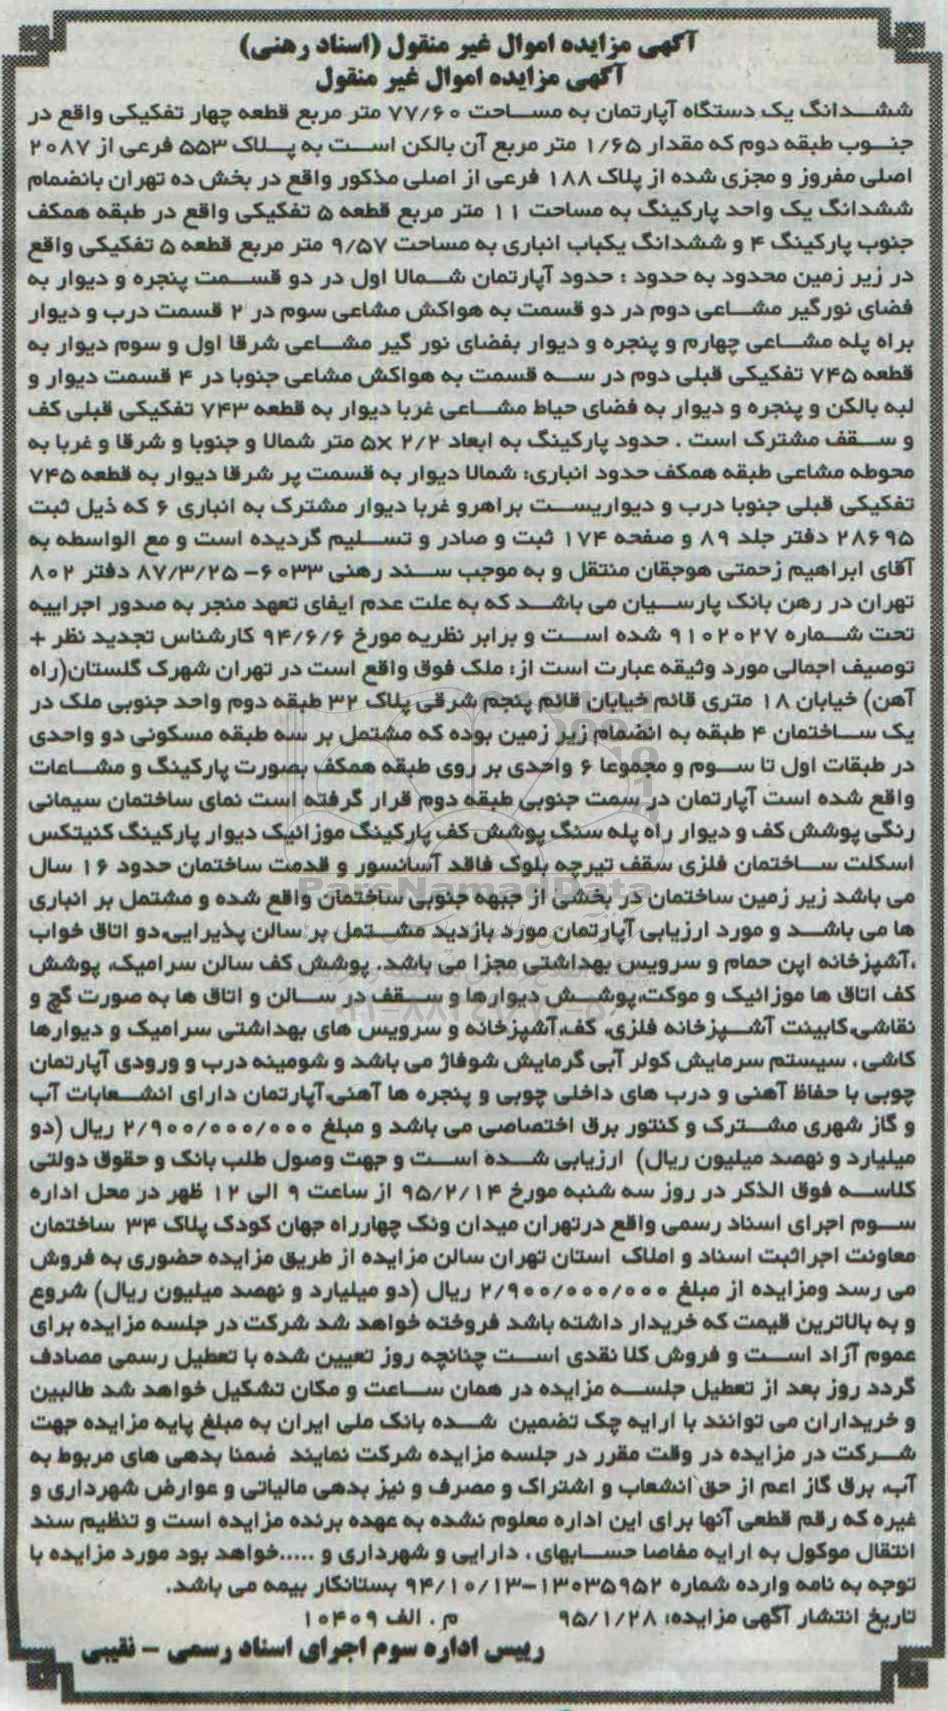 آگهی مزایده اموال غیر منقول (اسناد رهنی)
آگهی مزایده اموال غیر منقول
ششدانگ یک دستگاه آپارتمان به مساحت ۷۷/۶۰ متر مربع قطعه چهار تفکیکی واقع در
جنوب طبقه دوم که مقدار ۱/۶۵ متر مربع آن بالکن است به پلاک ۵۵۳ فرعی از ۲۰۸۷
اصلی مفروز و مجزی شده از پلاک ۱۸۸ فرعی از اصلی مذکور واقع در بخش ده تهران بانضمام
ششدانگ یک واحد پارکینگ به مساحت ۱۱ متر مربع قطعه ۵ تفکیکی واقع در طبقه همکف
جنوب پارکینگ ۴ و ششدانگ یکباب انباری به مساحت ۹/۵۷ متر مربع قطعه ۵ تفکیکی واقع
در زیر زمین محدود به حدود : حدود آپارتمان شمالا اول در دو قسمت پنجره و دیوار به
فضای نورگیر مشاعی دوم در دو قسمت به هواکش مشاعی سوم در ۲ قسمت درب و دیوار
براه پله مشاعی چهارم و پنجره و دیوار بفضای نور گیر مشاعی شرقا اول و سوم دیوار به
قطعه ۷۴۵ تفکیکی قبلی دوم در سه قسمت به هواکش مشاعی جنوبا در ۴ قسمت دیوار و
لبه بالکن و پنجره و دیوار به فضای حیاط مشاعی غربا دیوار به قطعه ۷۴۳ تفکیکی قبلی کف
و سقف مشترک است . حدود پارکینگ به ابعاد ۲/۲ ×۵ متر شمالا و جنوبا و شرقا و غربا به
محوطه مشاعی طبقه همکف حدود انباری: شمالا دیوار به قسمت پر شرقا دیوار به قطعه ۷۴۵
تفکیکی قبلی جنوبا درب و دیواریست براهرو غربا دیوار مشترک به انباری ۶ که ذیل ثبت
۲۸۶۹۵ دفتر جلد ۸۹ و صفحه ۱۷۴ ثبت و صادر و تسلیم گردیده است و مع الواسطه به
آقای ابراهیم زحمتی هوجقان منتقل و به موجب سند رهنی ۶۰۳۳- ۸۷/۳/۲۵ دفتر ۸۰۲
تهران در رهن بانک پارسیان می باشد که به علت عدم ایفای تعهد منجر به صدور اجراییه
تحت شماره ۹۱۰۲۰۲۷ شده است و برابر نظریه مورخ ۹۴/۶/۶ کارشناس تجدید نظر +
توصیف اجمالی مورد وثیقه عبارت است از: ملک فوق واقع است در تهران شهرک گلستان(راه
آهن) خیابان ۱۸ متری قائم خیابان قائم پنجم شرقی پلاک ۳۲ طبقه دوم واحد جنوبی ملک در
یک ساختمان ۴ طبقه به انضمام زیر زمین بوده که مشتمل بر سه طبقه مسکونی دو واحدی
در طبقات اول تا سوم و مجموعا ۶ واحدی بر روی طبقه همکف بصورت پارکینگ و مشاعات
واقع شده است آپارتمان در سمت جنوبی طبقه دوم قرار گرفته است نمای ساختمان سیمانی
رنگی پوشش کف و دیوار راه پله سنگ پوشش کف پارکینگ موزائیک دیوار پارکینگ کنیتکس
اسکلت ساختمان فلزی سقف تیرچه بلوک فاقد آسانسور و قدمت ساختمان حدود ۱۶ سال
می باشد زیر زمین ساختمان در بخشی از جبهه جنوبی ساختمان واقع شده و مشتمل بر انباری
ها می باشد و مورد ارزیابی آپارتمان مورد بازدید مشتمل بر سالن پذیرایی،دو اتاق خواب
،آشپزخانه اپن حمام و سرویس بهداشتی مجزا می باشد. پوشش کف سالن سرامیک، پوشش
کف اتاق ها موزائیک و موکت،پوشش دیوارها و سقف در سالن و اتاق ها به صورت گچ و
نقاشی،کابینت آشپزخانه فلزی، کف،آشپزخانه و سرویس های بهداشتی سرامیک و دیوارها
کاشی ، سیستم سرمایش کولر آبی گرمایش شوفاژ می باشد و شومینه درب و ورودی آپارتمان
چوبی با حفاظ آهنی و درب های داخلی چوبی و پنجره ها آهنی،آپارتمان دارای انشعابات آب
و گاز شهری مشترک و کنتور برق اختصاصی می باشد و مبلغ ۲/۹۰۰/۰۰۰/۰۰۰ ریال (دو
میلیارد و نهصد میلیون ریال) ارزیابی شده است و جهت وصول طلب بانک و حقوق دولتی
کلاسه فوق الذکر در روز سه شنبه مورخ ۹۵/۲/۱۴ از ساعت ۹ الی ۱۲ ظهر در محل اداره
سوم اجرای اسناد رسمی واقع درتهران میدان ونک چهارراه جهان کودک پلاک ۳۴ ساختمان
معاونت اجراثبت اسناد و املاک استان تهران سالن مزایده از طریق مزایده حضوری به فروش
می رسد ومزایده از مبلغ ۲/۹۰۰/۰۰۰/۰۰۰ ریال (دو میلیارد و نهصد میلیون ریال) شروع
و به بالاترین قیمت که خریدار داشته باشد فروخته خواهد شد شرکت در جلسه مزایده برای
عموم آزاد است و فروش کلا نقدی است چنانچه روز تعیین شده با تعطیل رسمی مصادف
گردد روز بعد از تعطیل جلسه مزایده در همان ساعت و مکان تشکیل خواهد شد طالبین
و خریداران می توانند با ارایه چک تضمین شده بانک ملی ایران به مبلغ پایه مزایده جهت
شرکت در مزایده در وقت مقرر در جلسه مزایده شرکت نمایند ضمنا بدهی های مربوط به
آب، برق گاز اعم از حق انشعاب و اشتراک و مصرف و نیز بدهی مالیاتی و عوارض شهرداری و
غیره که رقم قطعی آنها برای این اداره معلوم نشده به عهده برنده مزایده است و تنظیم سند
انتقال موکول به ارایه مفاصا حسابهای ، دارایی و شهرداری و .....خواهد بود مورد مزایده با
توجه به نامه وارده شماره ۱۳۰۳۵۹۵۲-۹۴/۱۰/۱۳ بستانکار بیمه می باشد.
تاریخ انتشار آگهی مزایده: ۹۵/۱/۲۸ م . الف ۱۰۴۰۹
رییس اداره سوم اجرای اسناد رسمی – نقیبی
ParsNamadData